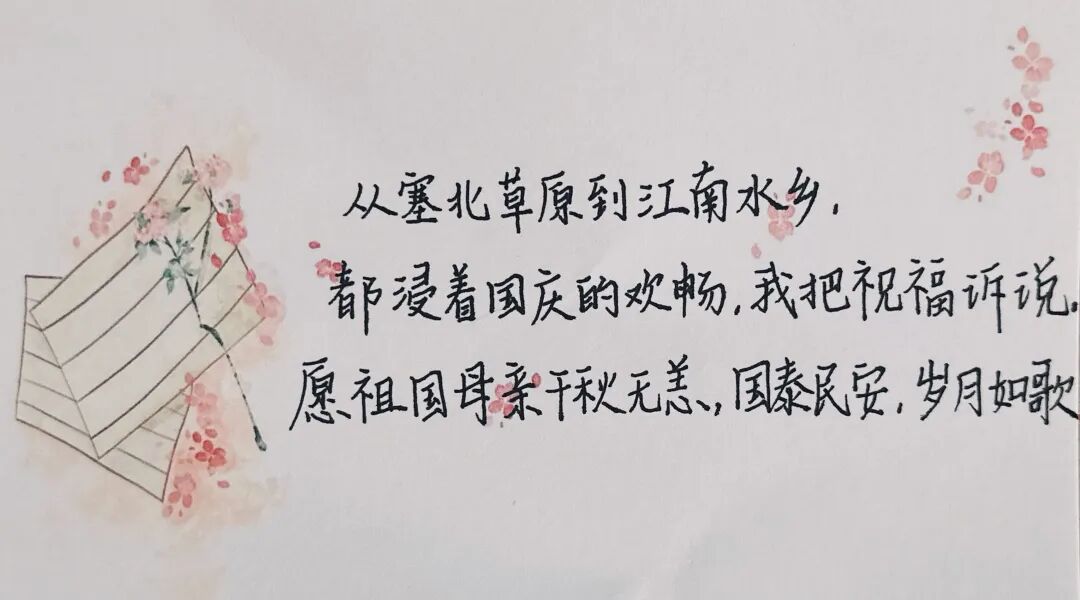 从塞北草原到江南水乡，
都浸着国庆的欢畅，我把祝福诉说。
愿祖国母亲千秋无恙，国泰民安，岁月如歌